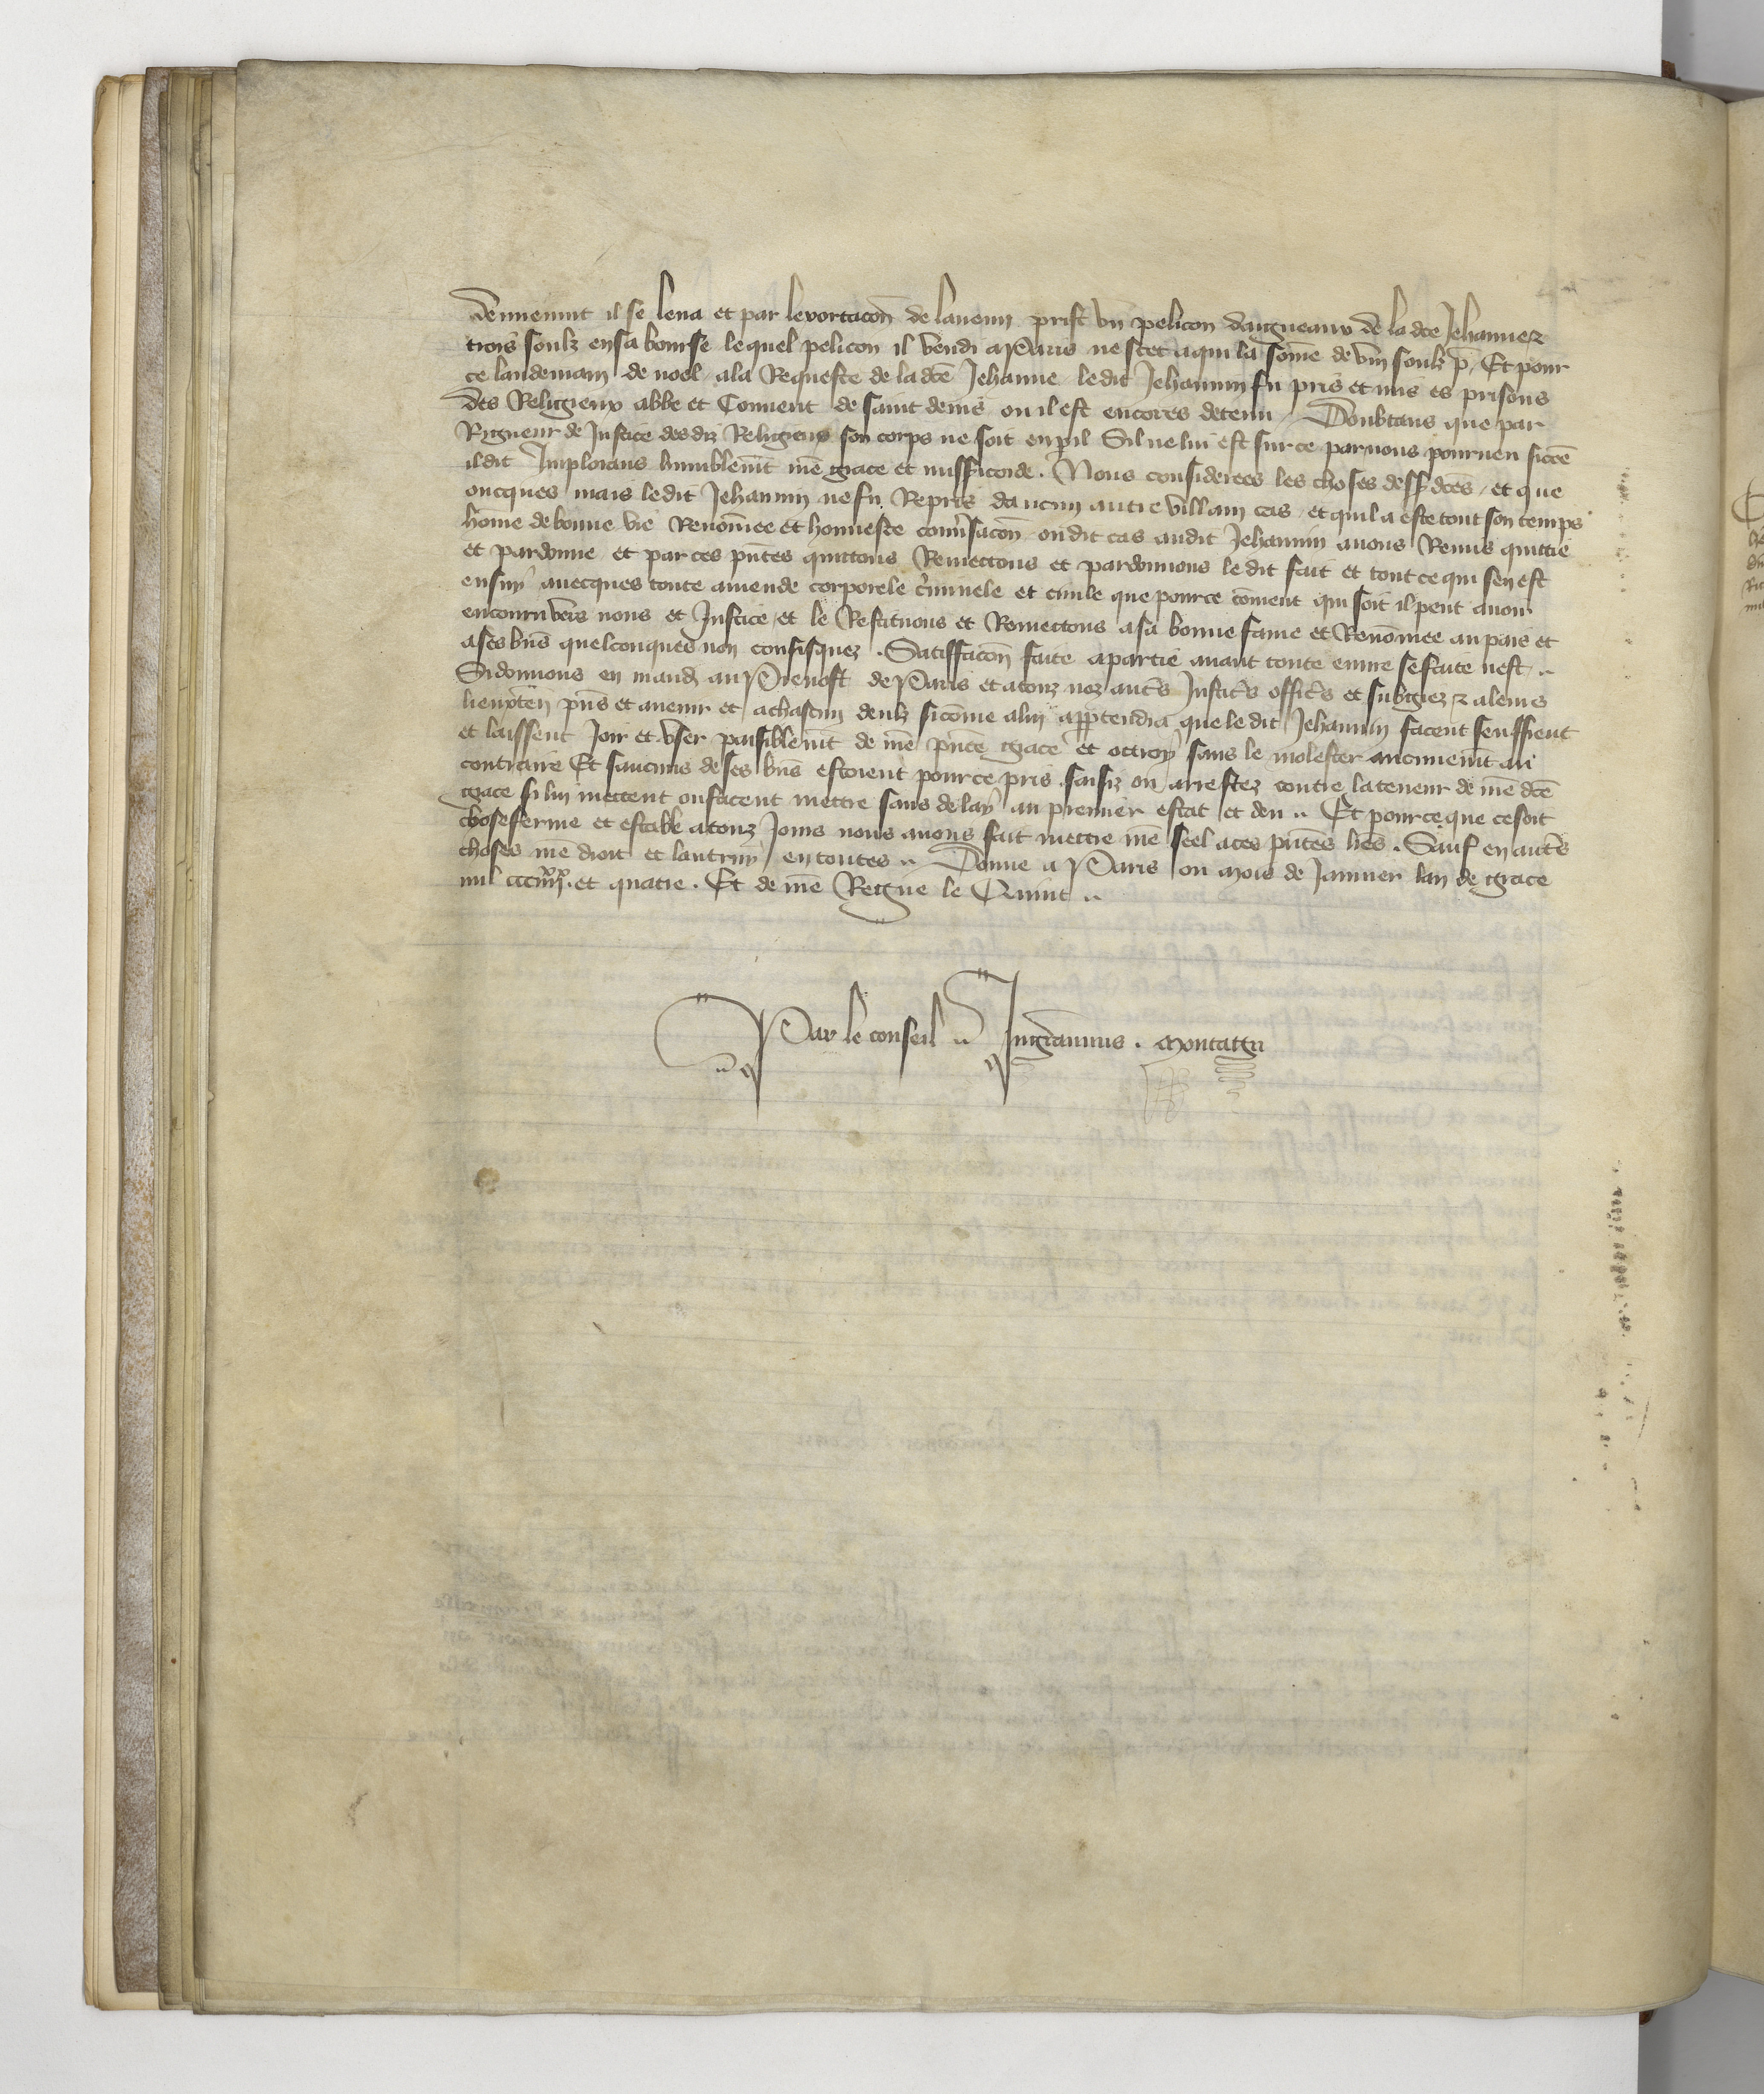 dennemnt il se leva et par lexortacōn de lanemi prist un pelicon daigneaux de la dcē Jehanne et
trois soulz en sa bourse lequel pelicon il vendi a Paris ne scet a qui la sōme de viii soulz p̄. Et pour
ce landemain de noel a la Requeste de la dcē Jehanne ledit Jehannin fu pris et mis es prisons
des Religieux abbe et Convent de saint denis ou il est encores detenu. Doubtans que par
Rigueur de Justice des diz Religieux son corps ne soit en pil Sil ne lui est sur ce par nous pourveu sicōe
il dit Implorans humblemt nrē grace et misericorde. Nous considerees les choses dessꝰ dcēs et que
oncques mais ledit Jehannin ne fu Repris daucun autre villain cas et quil a este tout son temps
hōme de bonne vie Renōmee et honneste conv̄sacōn ou dit cas audit Jehannin avons Remis quittie
et pardonne et par ces pn̄tes quittons Remettons et pardonnons le dit fait et tout ce qui sen est
ensuy avecques toute amende corporele c̄minele et civile que pour ce cōment qui soit il peut avoir
encouru vers nous et Justice, et le Restituons et Remettons a sa bonne fame et Renōmee au pais et
a ses bn̄s quelconques non confisquez. Satiffacōn faite a partie avant toute euvre se faite nest..
Si donnons en mand au Prevost de Paris et a touz noz aut̄s Justic̄s offic̄s et subgiez et a leurs
lieuxten̄ pn̄s et avenir et a chascun deulz sicōme a lui app̄tendra que le dit Jehannin facent seuffrent
et laissent Joir et user paisiblemt de nrē pn̄te grace et ottroy sans le molester aucunemt au
contraire Et saucuns de ses bn̄s estoient pour ce pris saisiz ou arrestez contre la teneur de nrē dcē
grace si lui mettent ou facent mettre sans delay au premier estat et deu.. Et pour ce que ce soit
chose ferme et estable a touz Jours nous avons fait mettre nrē seel a ces pn̄tes lr̄es. Sauf en aut̄s
choses nrē droit et lautruy en toutes.. Donne a Paris ou mois de Janvier lan de grace
mil ccc iiiixx. et quatre. Et de nrē Regne le Quint..
Par le conseil.. Ingrannus. Montagu